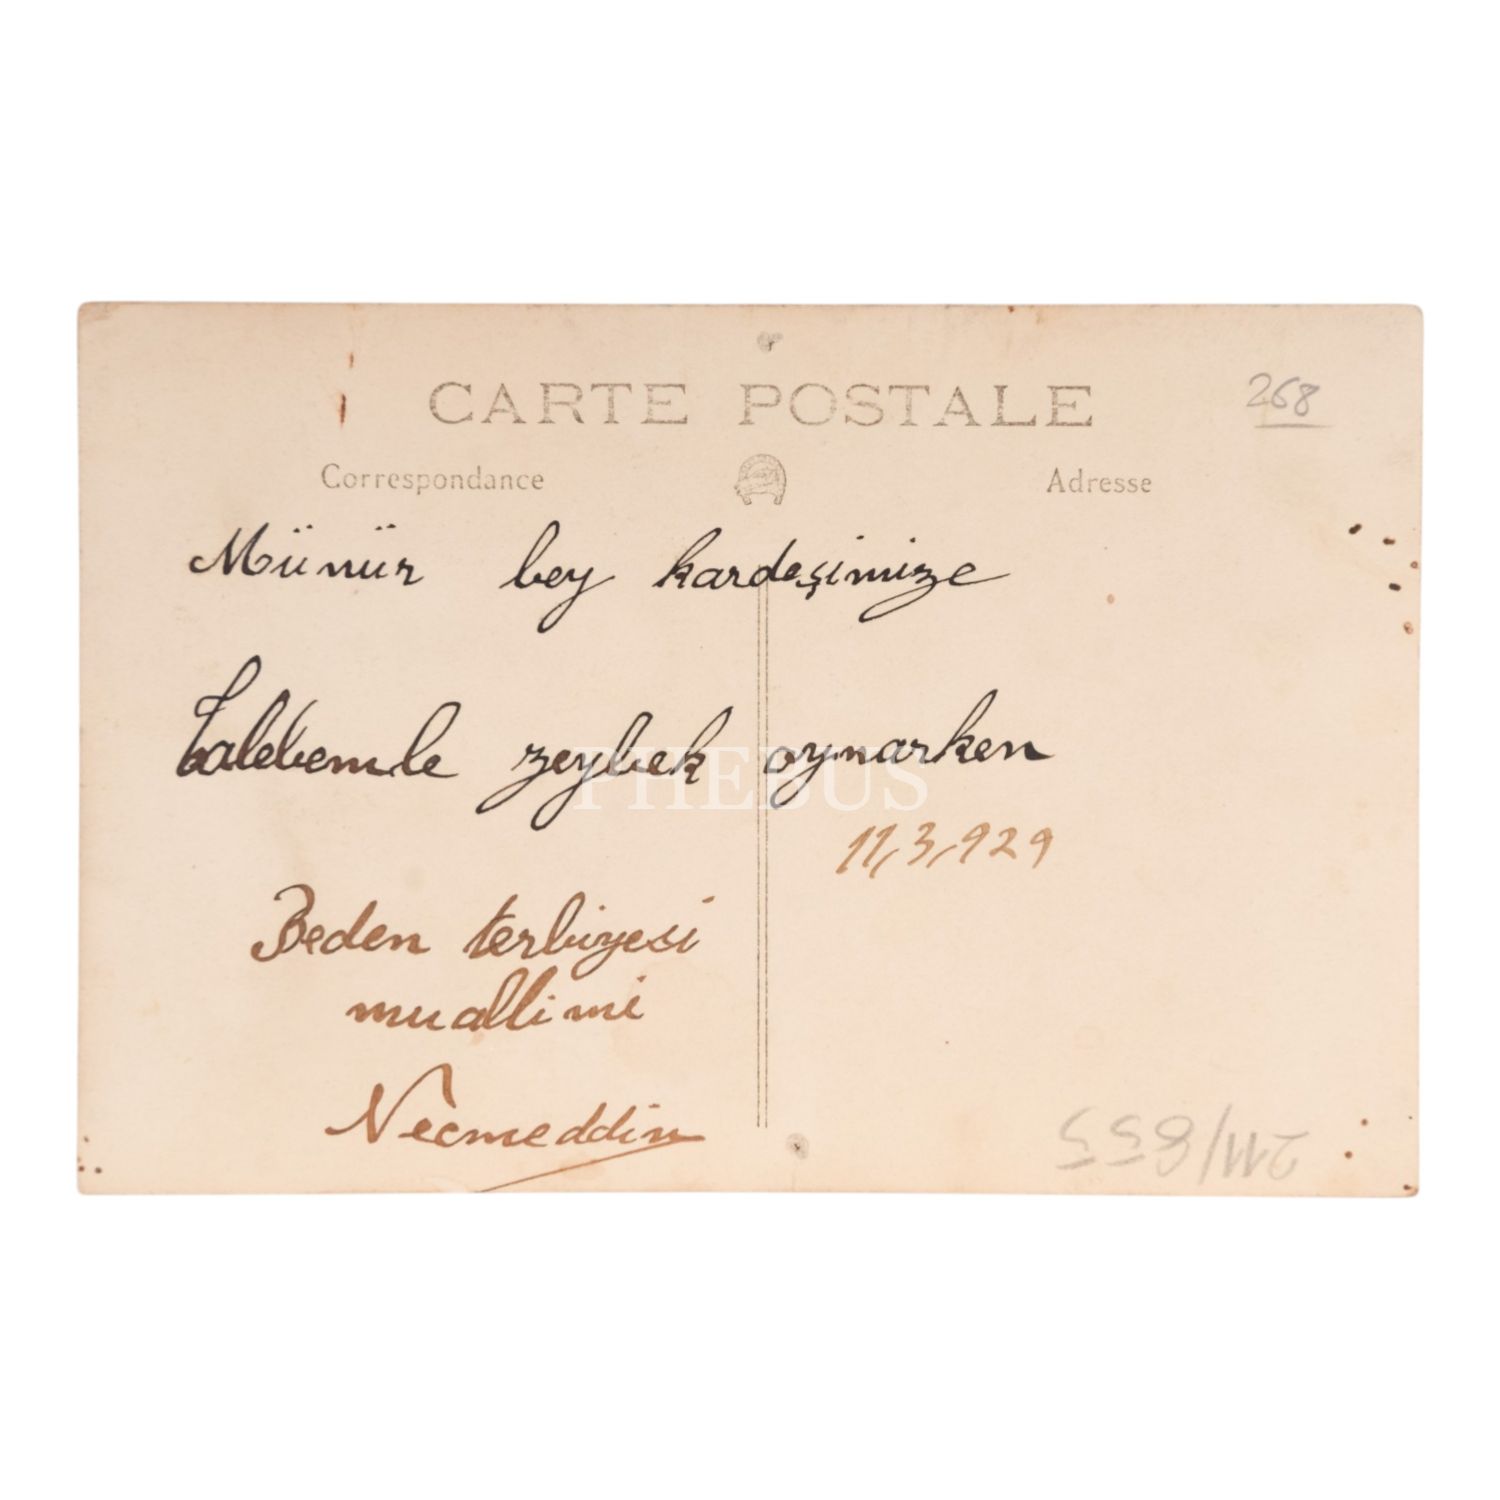 CARTE POSTALE
268
Correspondance
Adresse
Münür bey kardeşimize
talebemle zeybek oynarken
PHEBUS
11,3,929
Beden terbiyesi
muallimi
Necmeddin
211/855